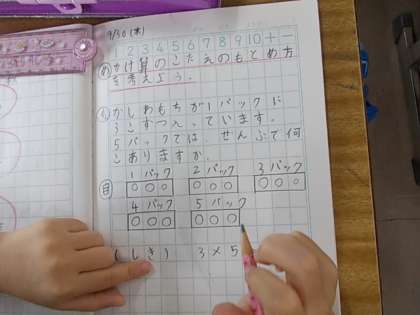 9/30(木)
1 2 3 4 5 6 7 8 9 10 + −
め かけ算のこたえのもとめ方
を考えよう。
も かしわもちが1パックに
3こずつ入っています。
5パックでは、ぜんぶで何
こありますか。
図 1パック 2パック 3パック
4パック 5パック
(しき) 3×5